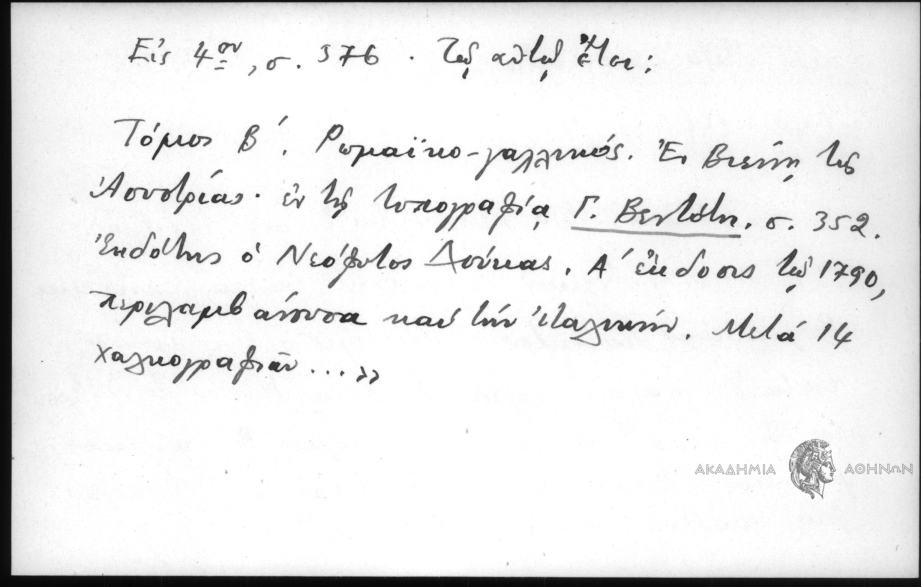 Εἰς 4ον, σ. 376. Τῷ αὐτῷ ἔτει:
Τόμος Β΄. Ρωμαϊκο-γαλλικός. Ἐν Βιέννῃ τῆς
Ἀουστρίας· ἐν τῇ τυπογραφίᾳ Γ. Βεντότη. σ. 352.
Ἐκδότης ὁ Νεόφυτος Δούκας. Α΄ ἔκδοσις τῷ 1790,
περιλαμβάνουσα καὶ τὴν ἰταλικήν. Μετά 14
χαλκογραφιῶν ...»
ΑΚΑΔΗΜΙΑ ΑΘΗΝΩΝ